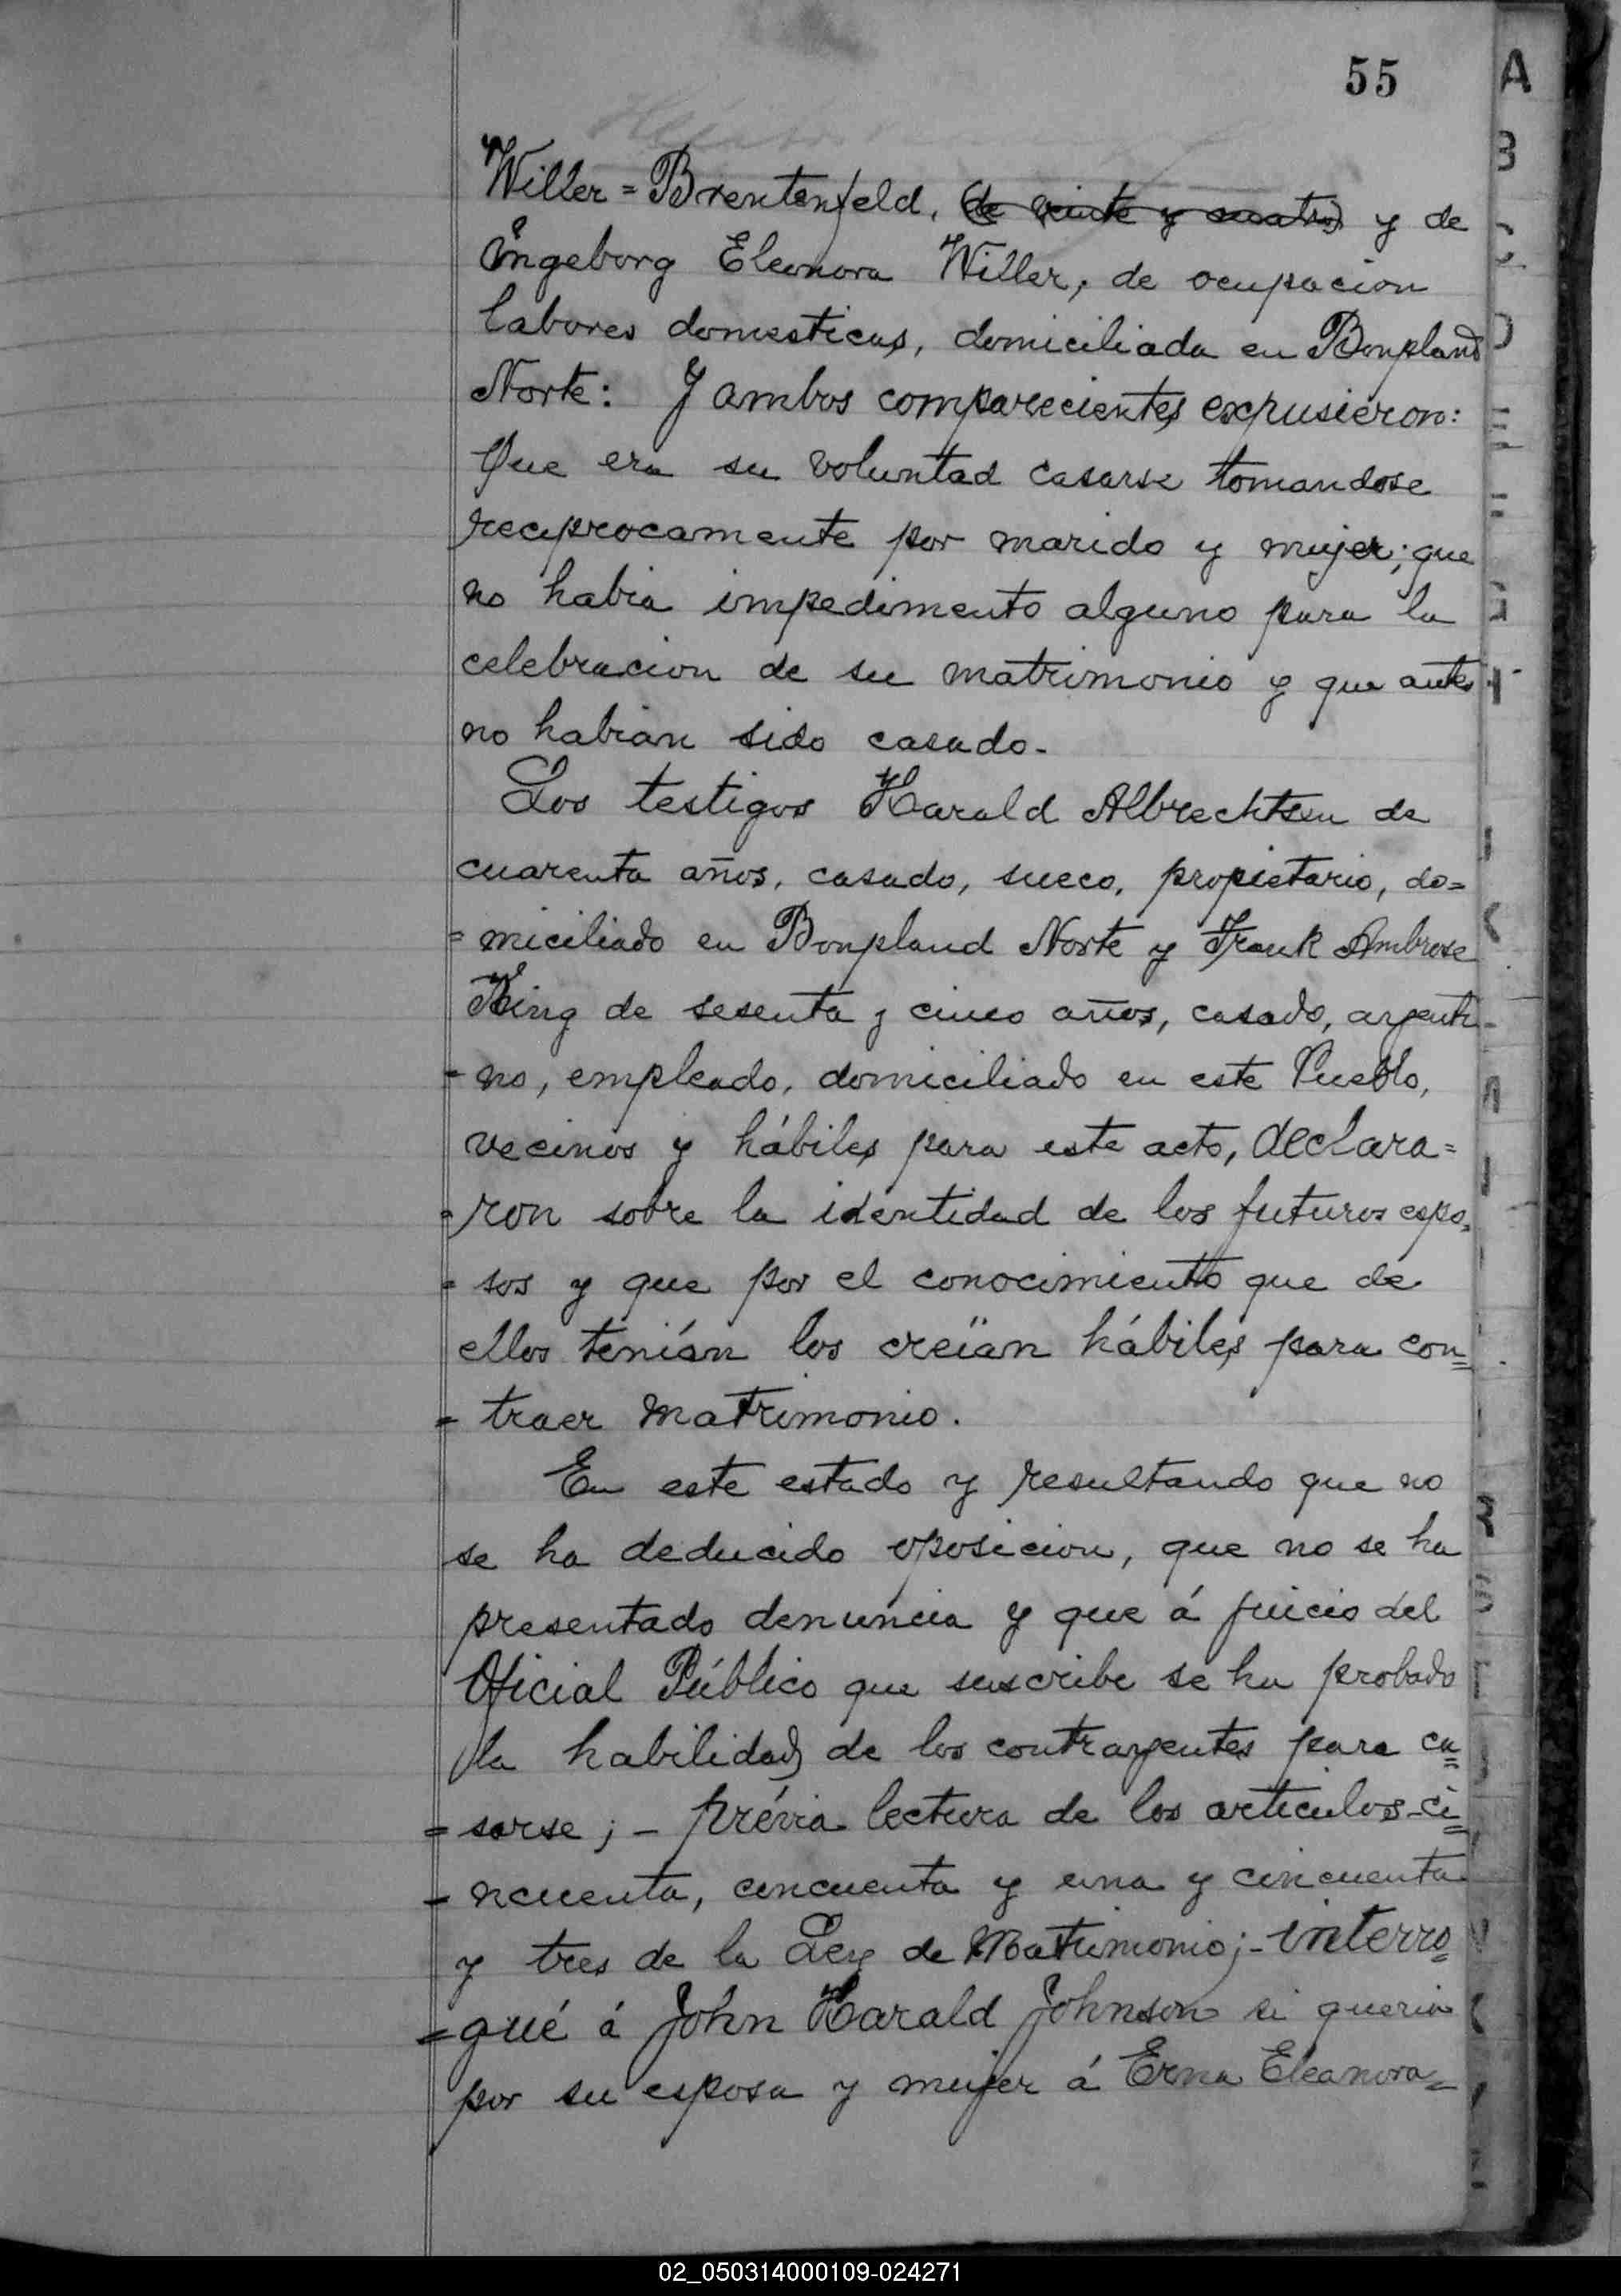 55
A
B
C
D
Willer = Brentenfeld, (de veinte y cuatro) y de
Ingeborg Eleonora Willer, de ocupacion
labores domesticas, domiciliada en Bonpland
Norte: Y ambos comparecientes expusieron:
Que era su voluntad casarse tomandose
reciprocamente por marido y mujer; que
no habia impedimento alguno para la
celebracion de su matrimonio y que antes
no habian sido casado.
Los testigos Harald Albrechtsen de
cuarenta años, casado, sueco, propietario, do=
= miciliado en Bonpland Norte y Frank Ambrose
King de sesenta y cinco años, casado, argenti-
- no, empleado, domiciliado en este Pueblo,
vecinos y hábiles para este acto, declara=
= ron sobre la identidad de los futuros espo=
= sos y que por el conocimiento que de
ellos tenían los creïan hábiles para con=
= traer matrimonio.
En este estado y resultando que no
se ha deducido oposicion, que no se ha
presentado denuncia y que á juicio del
Oficial Público que suscribe se ha probado
la habilidad de los contrayentes para ca=
= sarse; - prévia lectura de los articulos ci=
- ncuenta, cincuenta y una y cincuenta
y tres de la Ley de Matrimonio; - interro=
= gué á John Harald Johnson si queria
por su esposa y mujer á Erna Eleanora=
02_050314000109-024271